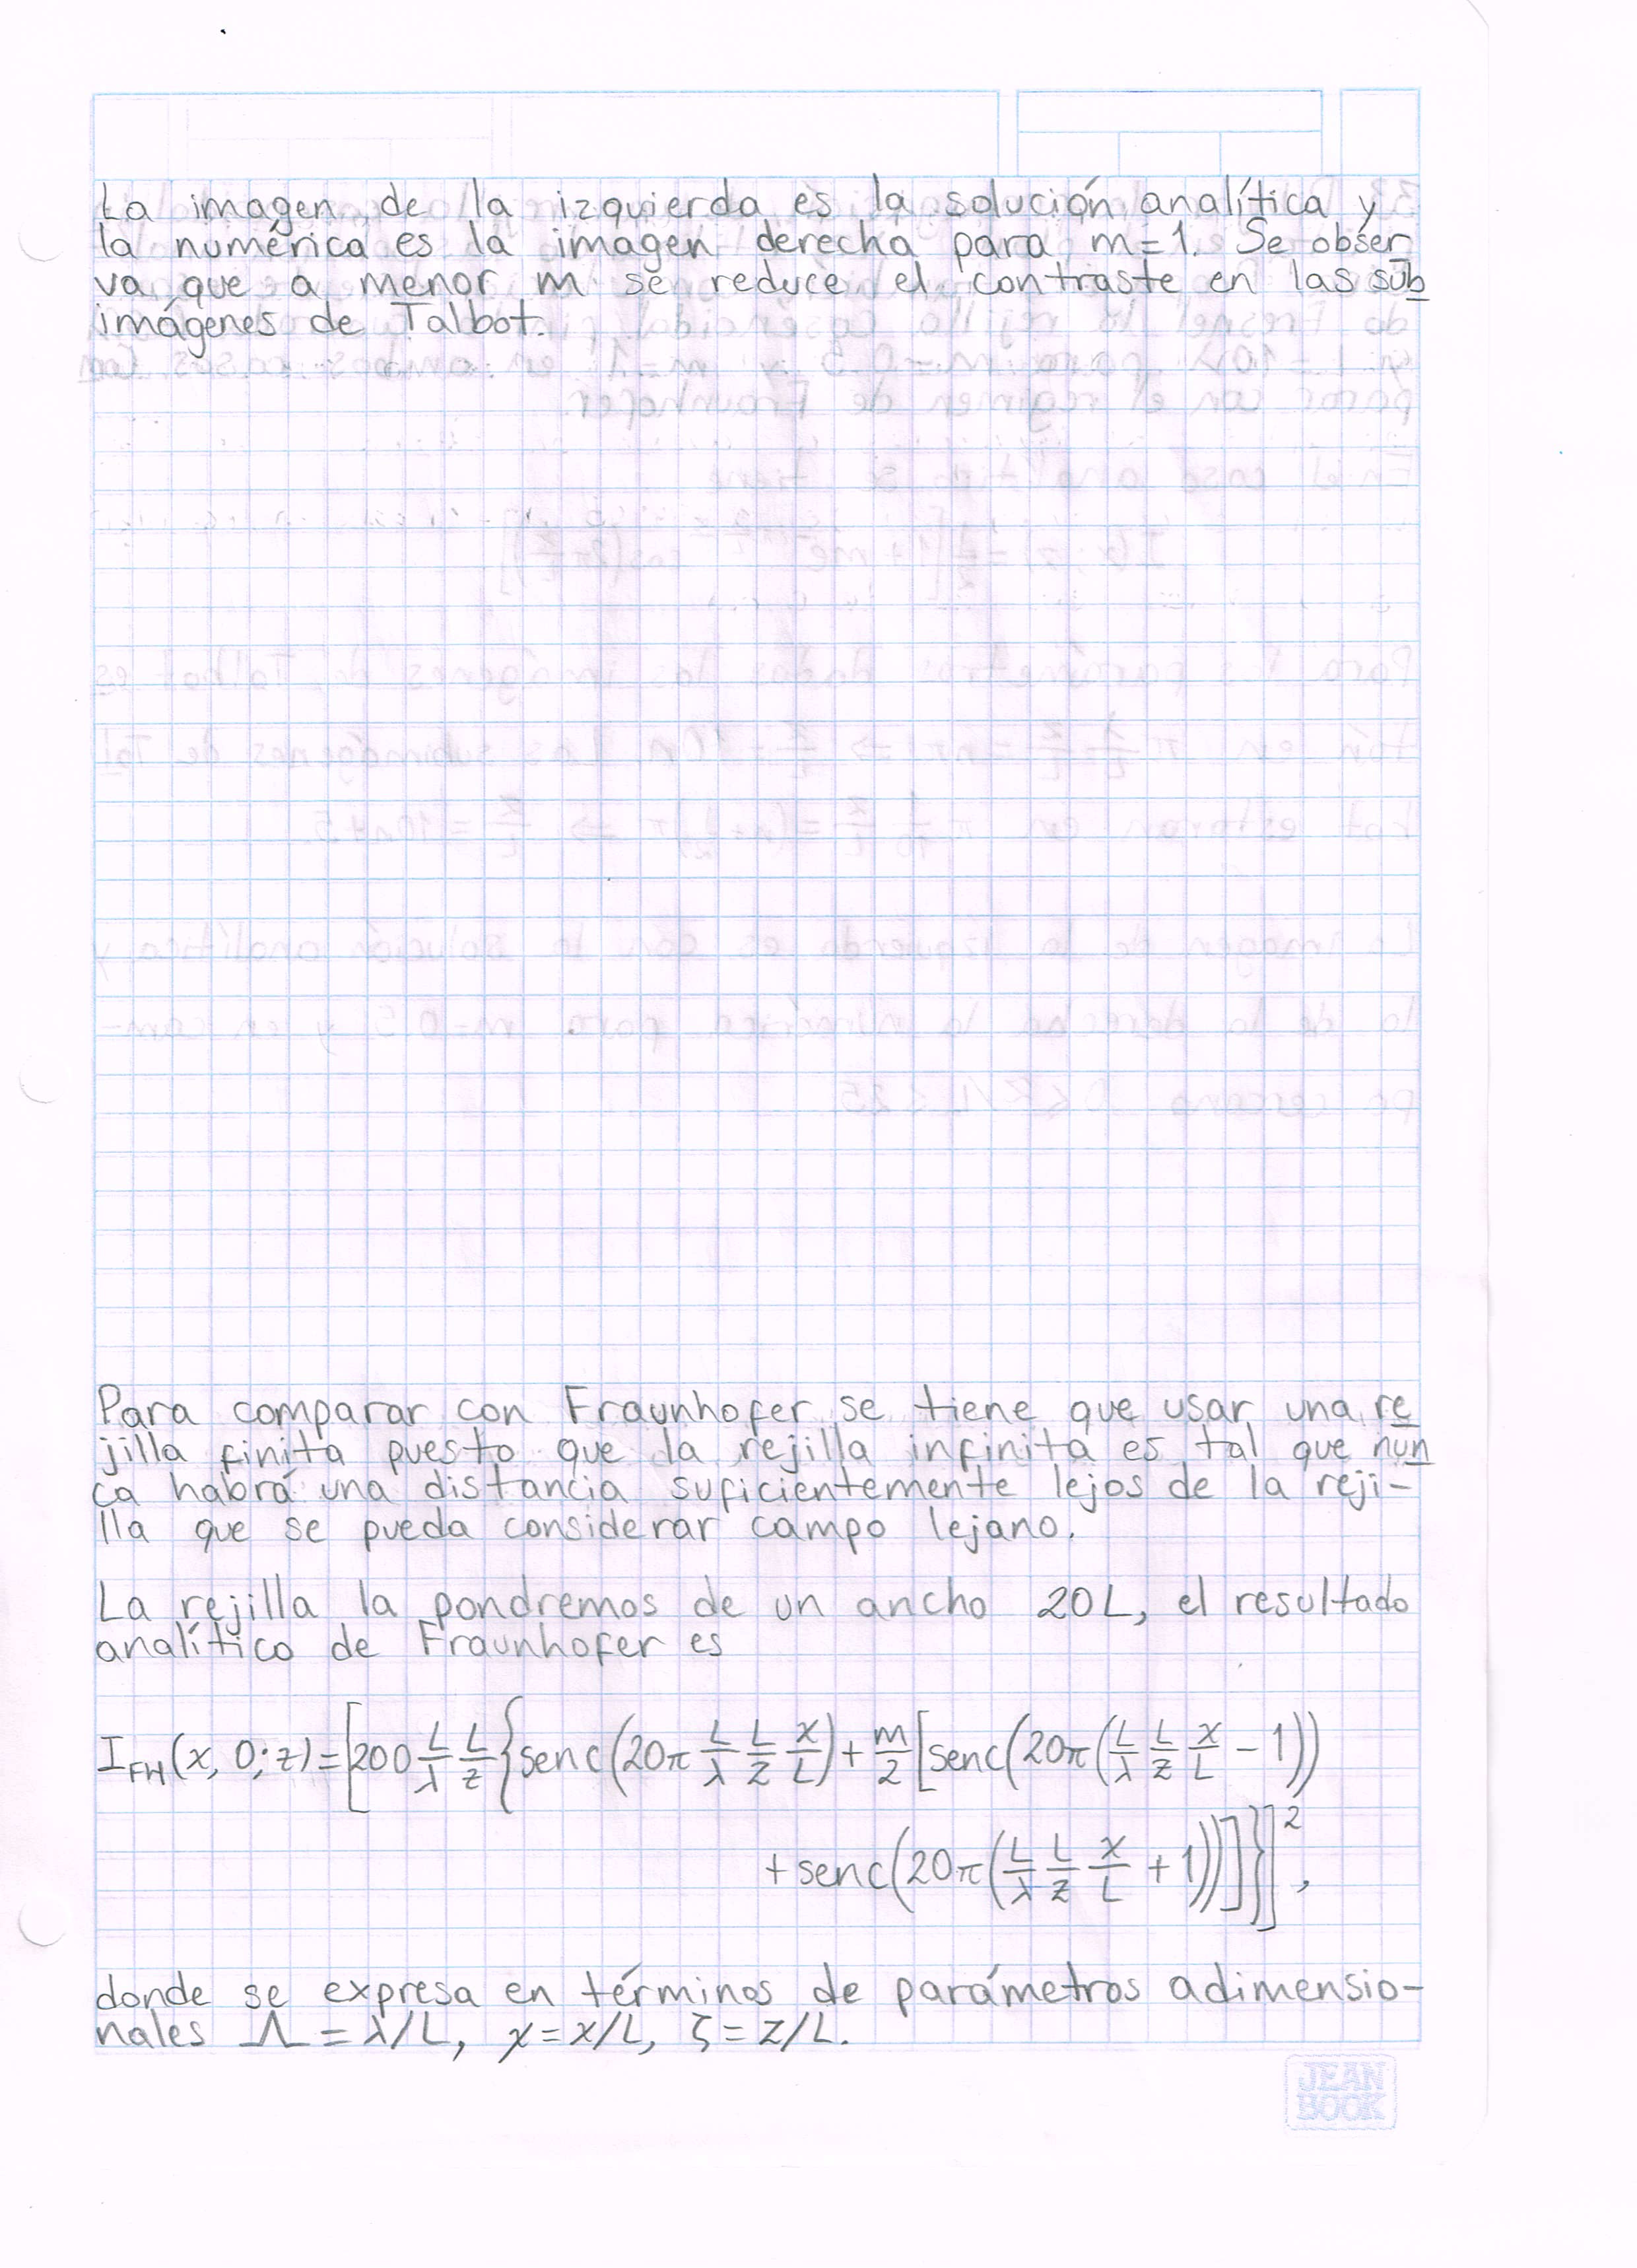 La imagen de la izquierda es la solución analítica y
la numérica es la imagen derecha para m=1. Se obser
va que a menor m se reduce el contraste en las sub
imágenes de Talbot.
Para comparar con Fraunhofer se tiene que usar una re
jilla finita puesto que la rejilla infinita es tal que nun
ca habrá una distancia suficientemente lejos de la reji-
lla que se pueda considerar campo lejano.
La rejilla la pondremos de un ancho 20L, el resultado
analítico de Fraunhofer es
I_FH(x, 0; z) = [200 L/λ L/z {senc(20π L/λ L/z x/L) + m/2 [senc(20π(L/λ L/z x/L - 1))
+ senc(20π(L/λ L/z x/L + 1))]}]²,
donde se expresa en términos de parámetros adimensio-
nales Λ = λ/L, χ = x/L, ζ = z/L.
JEAN
BOOK